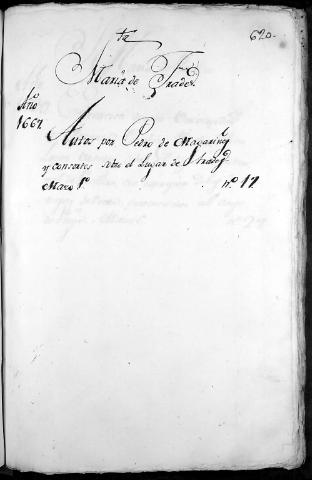 620.
Maria de Frades
Año
1667.
Autos por Pedro de Magariños
y consortes sobre el Lugar de Frades
Mazo 1º nº 17